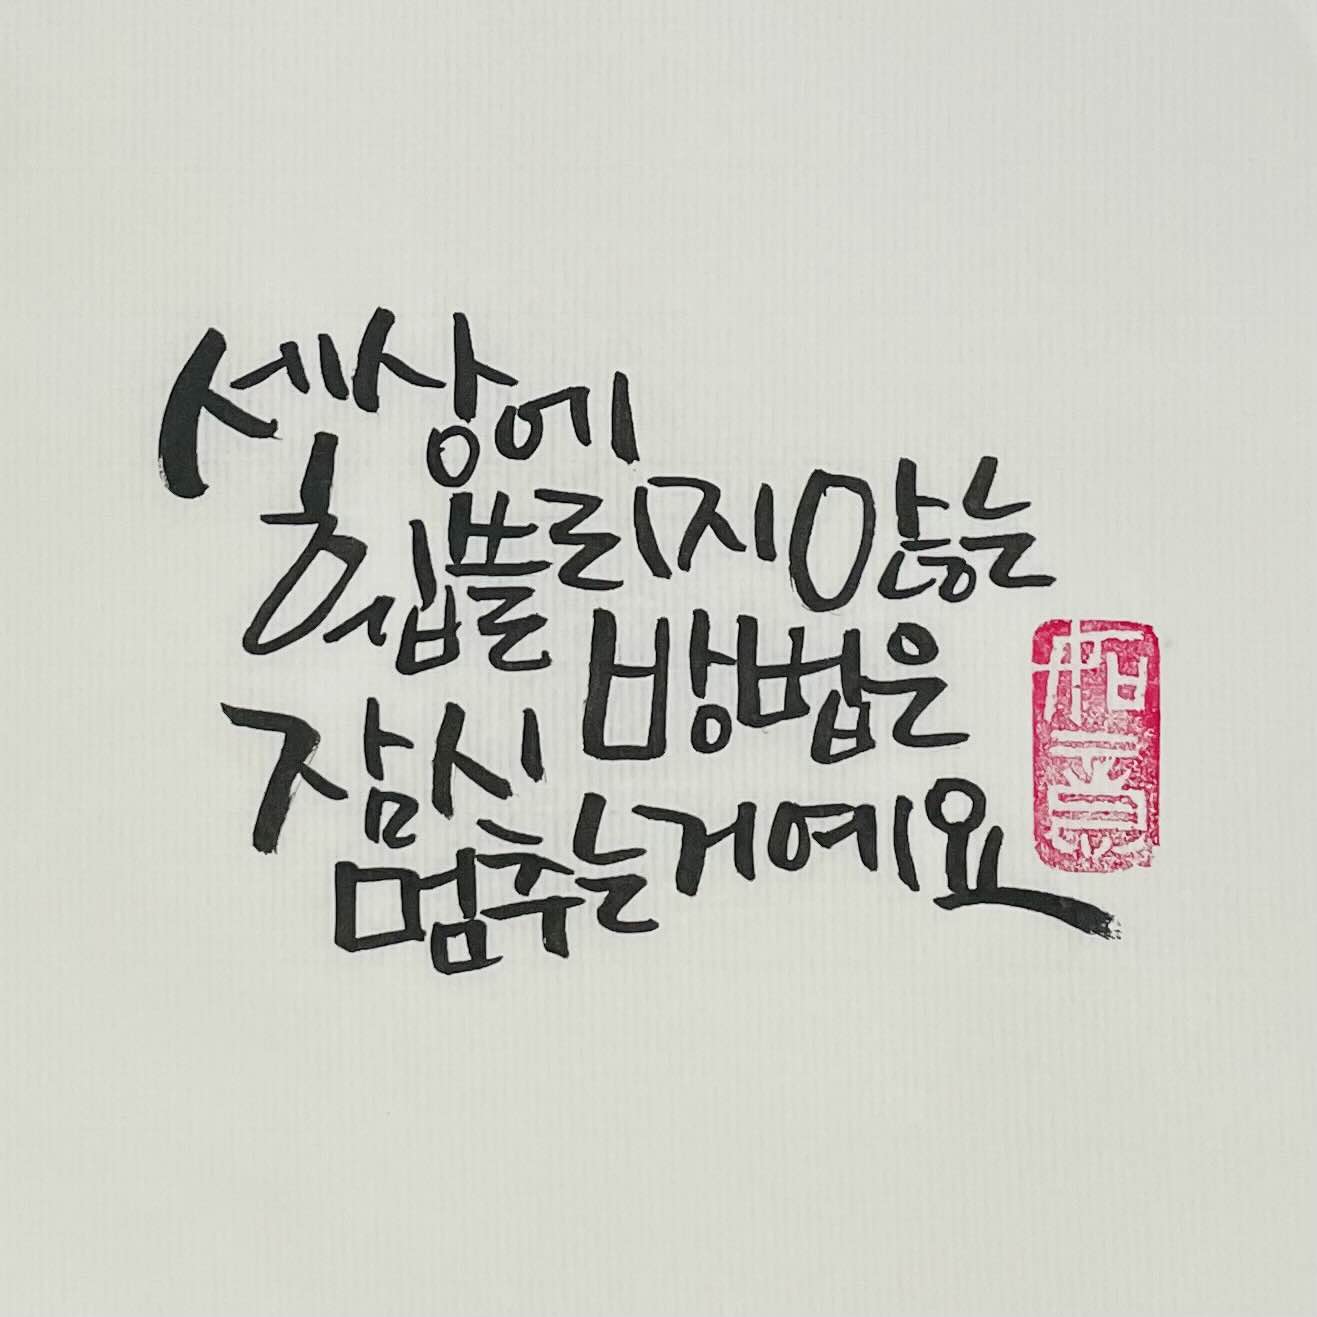 세상에
휩쓸리지 않는
방법은
잠시
멈추는거예요